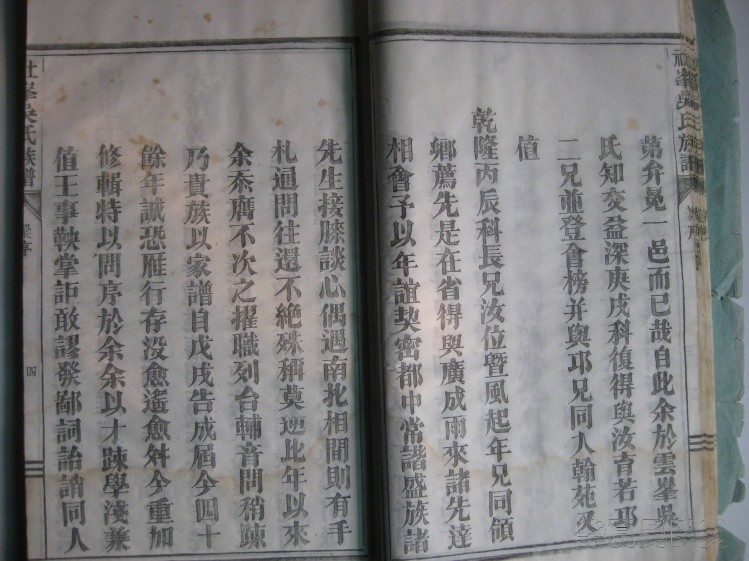 弟弁冕一邑而已哉自此余於雲峯吳
氏知交益深庚戌科復得與汝育若邛
二兄並登會榜并與邛兄同入翰苑又
值
乾隆丙辰科長兄汝位暨風起年兄同領
鄉薦先是在省得與廣成雨來諸先達
相會予以年誼契密都中常諧盛族諸
先生接膝談心偶遇南北相間則有手
札通問往還不絶殊稱莫逆比年以來
余忝膺不次之擢職列台輔音問稍踈
乃貴族以家譜自戊戌告成屆今四十
餘年誠恐雁行存没愈遙愈舛今重加
修輯特以問序於余余以才踈學淺兼
值王事鞅掌詎敢謬發鄙詞詒誚同人
社峯吳氏族譜
梁序
四